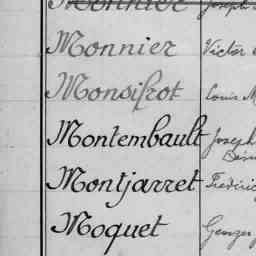 Monnier Joseph
Monnier Victor
Monsifrot Louis M
Montembault Joseph
Montjarret Frédéric
Moquet Georges